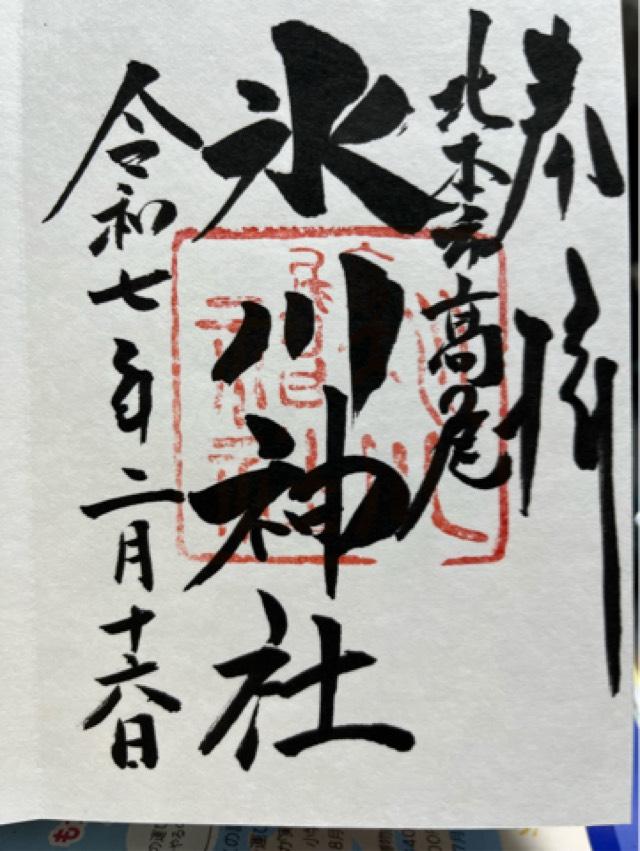 奉拝
北本市高尾
氷川神社
令和七年二月十六日